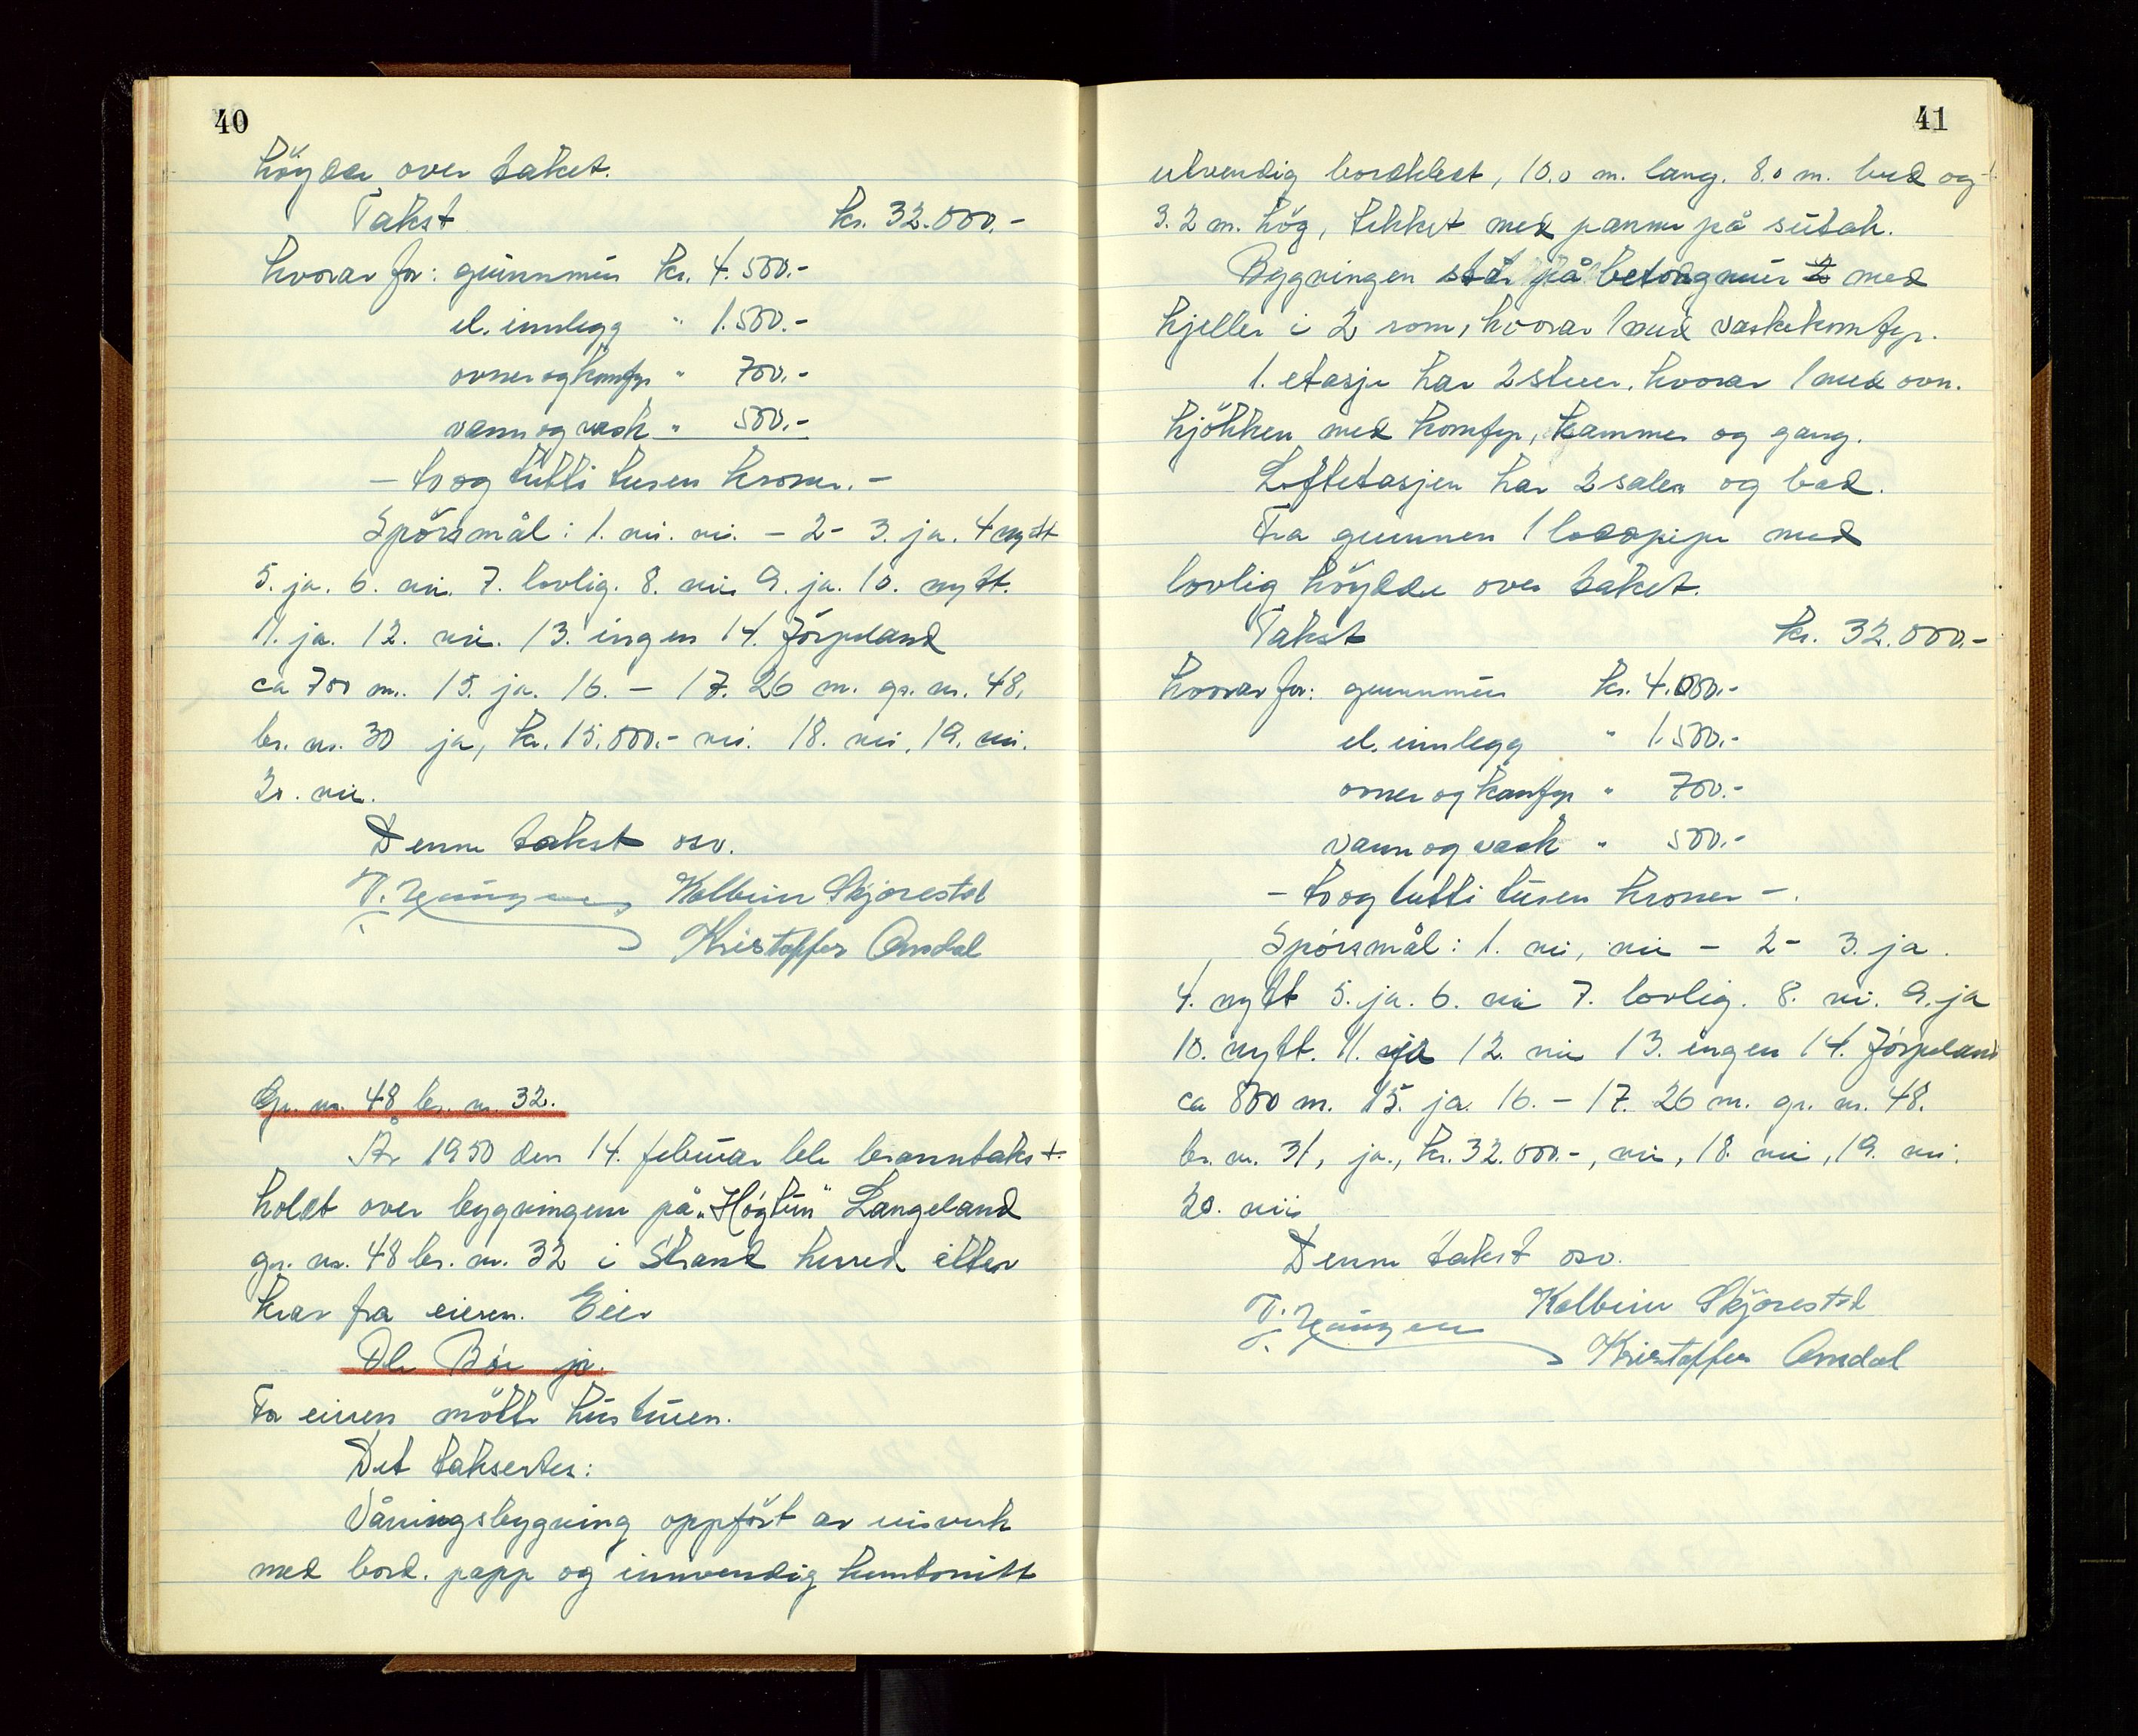 40
höyder over taket.
Takst kr. 32.000.-
hvorav for: grunnmur kr. 4.500.-
el. innlegg " 1.500.-
ovner og komfyr " 700.-
vann og vask " 500.-
- to og tutti tusen kroner. -
Spörsmål: 1. nei. nei. - 2 - 3. ja. 4 nytt
5. ja. 6. nei. 7. lovlig. 8. nei 9. ja. 10. nytt.
11. ja. 12. nei. 13. ingen 14. Jörpeland
ca 700 m. 15. ja. 16. - 17. 26 m. gr. nr. 48,
br. nr. 30 ja, kr. 15.000.- nei. 18. nei, 19. nei.
20. nei.
Denne takst osv.
Kolbein Skjørestad
Kristoffer Amdal
Gr. nr. 48 br. nr. 32.
År 1950 den 14. februar ble branntakst
holdt over bygningene på "Høgtun" Langeland
gr. nr. 48 br. nr. 32 i Strand herred etter
krav fra eieren. Eier
Ole Bøe jr.
For eieren mötte hustruen.
Det takseres:
Våningsbygning oppfört av uisverk
med bord, papp og innvendig huntonitt
41
utvendig bordkledt, 10.0 m. lang. 8.0 m. bred og
3.2 m. hög, tekket med panne på sutak.
Bygningen står på betongmur med
kjeller i 2 rom, hvorav 1 med vaskekomfyr.
1. etasje har 2 stuer, hvorav 1 med ovn.
kjökken med komfyr, kammer og gang.
Loftetasjen har 2 saler og bad.
Fra grunnen 1 loddpipe med
lovlig höyder over taket.
Takst kr. 32.000.-
hvorav for: grunnmur kr. 4.000.-
el. innlegg " 1.500.-
ovner og komfyr " 700.-
vann og vask " 500.-
- to og tutti tusen kroner -.
Spörsmål: 1. nei, nei - 2 - 3. ja.
4. nytt 5. ja. 6. nei 7. lovlig. 8. nei. 9. ja
10. nytt. 11. ja 12. nei 13. ingen 14. Jörpeland
ca 800 m. 15. ja. 16. - 17. 26 m. gr. nr. 48.
br. nr. 31, ja., kr. 32.000.-, nei, 18. nei, 19. nei.
20. nei
Denne takst osv.
Kolbein Skjørestad
Kristoffer Amdal